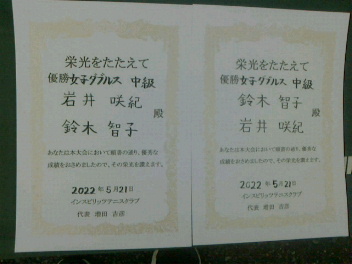 栄光をたたえて
優勝 女子ダブルス 中級
岩井 咲紀
鈴木 智子
殿
あなたは本大会において頭書の通り、優秀な
成績をおさめましたので、その栄光を讃えます。
2022年5月21日
インスピリッツテニスクラブ
代表 増田 吉彦
栄光をたたえて
優勝 女子ダブルス 中級
鈴木 智子
岩井 咲紀
殿
あなたは本大会において頭書の通り、優秀な
成績をおさめましたので、その栄光を讃えます。
2022年5月21日
インスピリッツテニスクラブ
代表 増田 吉彦